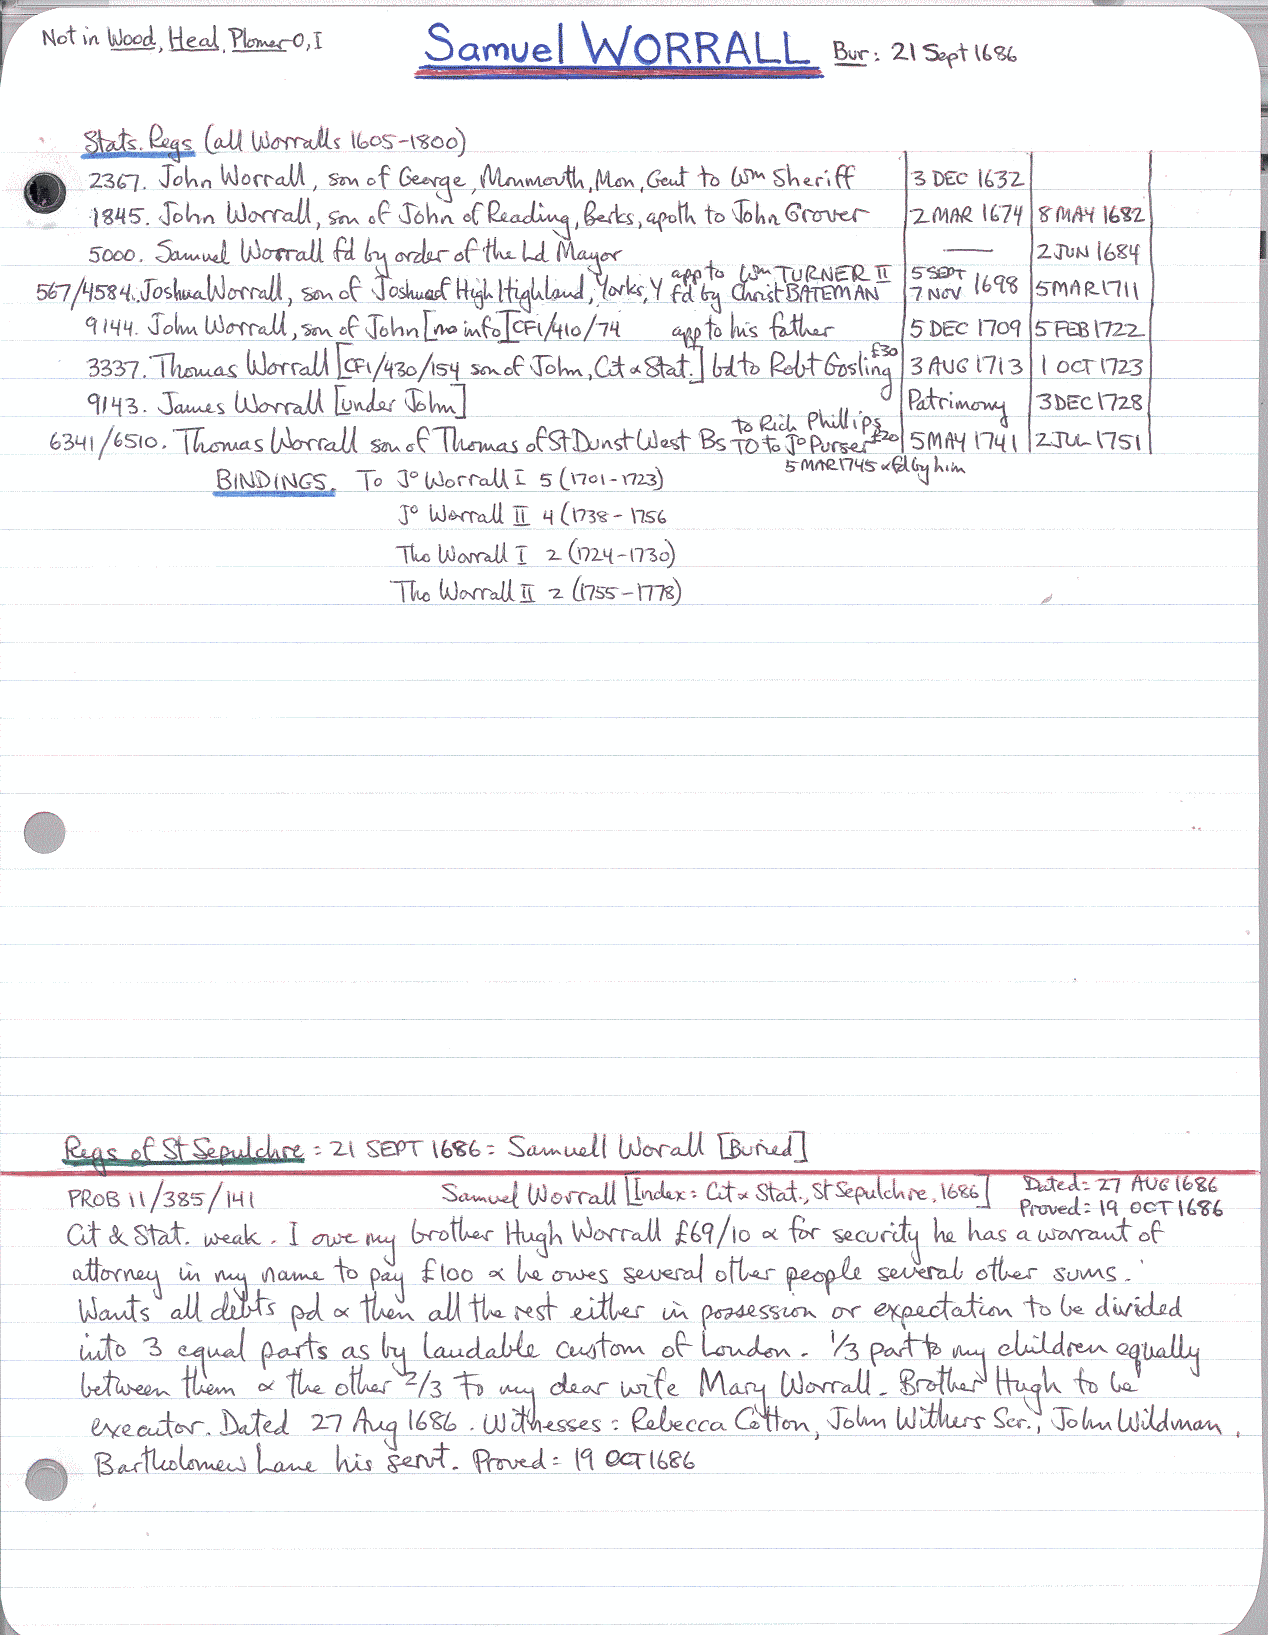 Not in Wood, Heal, Plomer O, I
Samuel WORRALL Bur: 21 Sept 1686
Stats. Regs (all Worralls 1605-1800)
2367. John Worrall, son of George, Monmouth, Mon, Gent to Wm Sheriff 3 DEC 1632
1845. John Worrall, son of John of Reading, Berks, apoth to John Grover 2 MAR 1674 8 MAY 1682
5000. Samuel Worrall fd by order of the Ld Mayor — 2 JUN 1684
app to Wm TURNER II 5 SEPT
567/4584. Joshua Worrall, son of Joshua of High Highland, Yorks, Y fd by Christ BATEMAN 7 NOV 1698 5 MAR 1711
9144. John Worrall, son of John [no info] CF1/410/74 app to his father 5 DEC 1709 5 FEB 1722
3337. Thomas Worrall [CF1/430/154 son of John, Cit & Stat.] bd to Robt Gosling £30 3 AUG 1713 1 OCT 1723
9143. James Worrall [under John] Patrimony 3 DEC 1728
to Rich Phillips
6341/6510. Thomas Worrall son of Thomas of St Dunst West Bs TO to Jo Purser £20 5 MAY 1741 2 JUL 1751
5 MAR 1745 & fd by him
BINDINGS. To Jo Worrall I 5 (1701-1723)
Jo Worrall II 4 (1738-1756
Tho Worrall I 2 (1724-1730)
Tho Worrall II 2 (1755-1778)
Regs of St Sepulchre = 21 SEPT 1686 = Samuell Worall [Buried]
PROB 11/385/141 Samuel Worrall [Index: Cit & Stat., St Sepulchre, 1686] Dated = 27 AUG 1686
Proved = 19 OCT 1686
Cit & Stat. weak. I owe my brother Hugh Worrall £69/10 & for security he has a warrant of
attorney in my name to pay £100 & he owes several other people several other sums.
Wants all debts pd & then all the rest either in possession or expectation to be divided
into 3 equal parts as by laudable custom of London. 1/3 part to my children equally
between them & the other 2/3 to my dear wife Mary Worrall. Brother Hugh to be
executor. Dated 27 Aug 1686. Witnesses: Rebecca Cotton, John Withers Scr., John Wildman,
Bartholomew Lane his servt. Proved = 19 OCT 1686